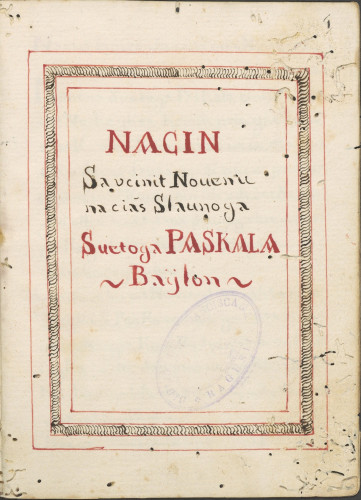 NACIN
Sa vcinit Nouenu
na ciás Slaunoga
Suetoga PASKALA
~ Baÿlon ~